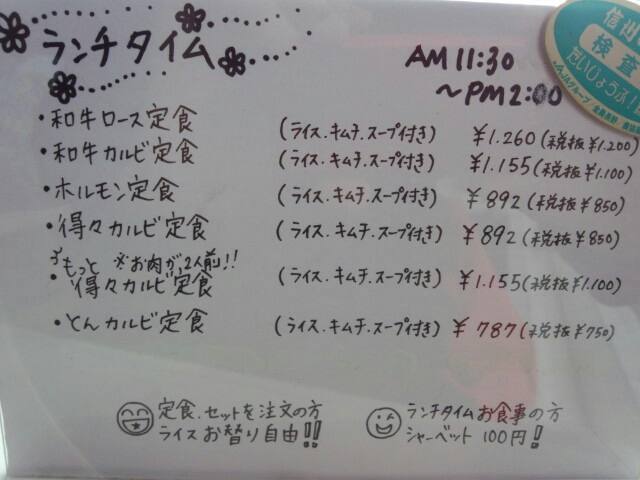 ランチタイム
AM 11:30
～PM 2:00
・和牛ロース定食 (ライス.キムチ.スープ付き) ￥1.260(税抜￥1.200)
・和牛カルビ定食 (ライス.キムチ.スープ付き) ￥1.155(税抜￥1.100)
・ホルモン定食 (ライス.キムチ.スープ付き) ￥892(税抜￥850)
・得々カルビ定食 (ライス.キムチ.スープ付き) ￥892(税抜￥850)
もっと ※お肉が2人前!!
・得々カルビ定食 (ライス.キムチ.スープ付き) ￥1.155(税抜￥1.100)
・とんカルビ定食 (ライス.キムチ.スープ付き) ￥787(税抜￥750)
定食.セットを注文の方
ライスお替り自由!!
ランチタイムお食事の方
シャーベット 100円!
信州
検査
だいじょうぶ